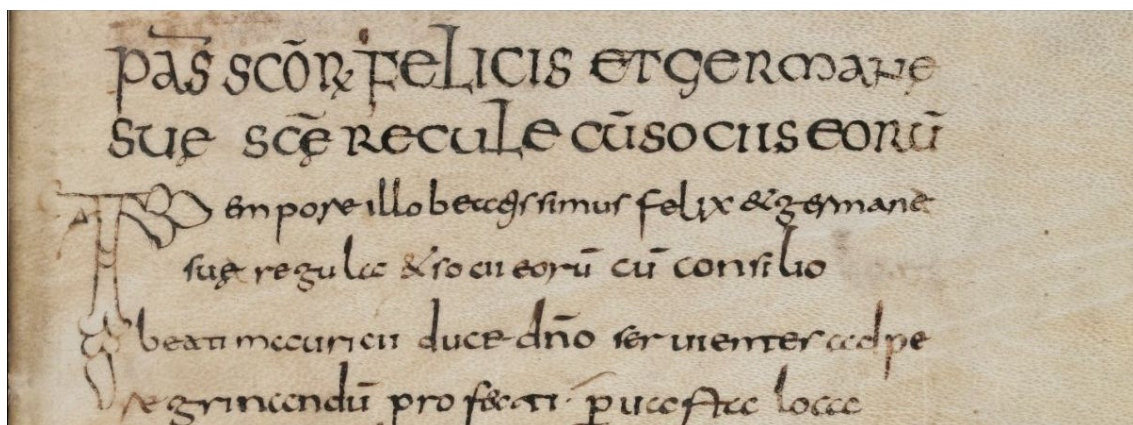 PAS̄ SCŌRꝜ FELICIS ET GERMANE
SUE SCĒ RECULE CŪ SOCIIS EORŪ
Tempore illo beatissimus felix & germane
sue regula & socii eorū cū consilio
beati mauricii duce dn̄o servientes ad pe
regrinandū profecti ꝑ uasta loca